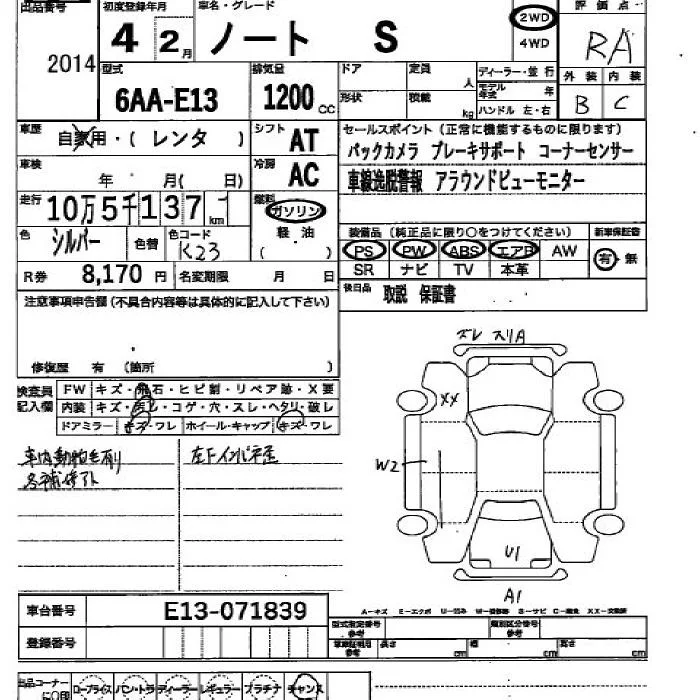 出品番号 初度登録年月 車名・グレード 評価点
2014 4 2月 ノート S 2WD RA
4WD
型式 排気量 ドア 定員 人 ディーラー・並行 外装 内装
6AA-E13 1200cc 形状 積載 kg モデル年式 年 B C
ハンドル 左・右
車歴 自家用・( レンタ ) シフト AT セールスポイント (正常に機能するものに限ります)
バックカメラ ブレーキサポート コーナーセンサー
車検 年 月( 日) 冷房 AC 車線逸脱警報 アラウンドビューモニター
走行 10万5千137km 燃料 ガソリン
軽油
( )
装備品 (純正品に限り○をつけてください) 新車保証書
色 シルバー 色替 色コード K23 PS PW ABS エアB AW 有・無
SR ナビ TV 本革
R券 8,170円 名変期限 月 日 後日品 取説 保証書
注意事項申告欄 (不具合内容等は具体的に記入して下さい)
修復歴 有 (箇所 )
ズレ スリA
検査員記入欄 FW キズ・飛石・ヒビ割・リペア跡・X要
内装 キズ・汚レ・コゲ・穴・スレ・ヘタリ・破レ
ドアミラー キズ・ワレ ホイール・キャップ キズ・ワレ
XX
車内動物毛有り 左Fインパネ
W2
U1
A1
車台番号 E13-071839
A-キズ E-エクボ U-凹み W-補修跡 S-サビ C-腐食 XX-交換済
登録番号 型式指定番号 参考 類別区分番号 参考
車庫証明用 参考 長さ cm 幅 cm 高さ cm
出品コーナー ロープライス バントラ ディーラー レギュラー プラチナ チャンス